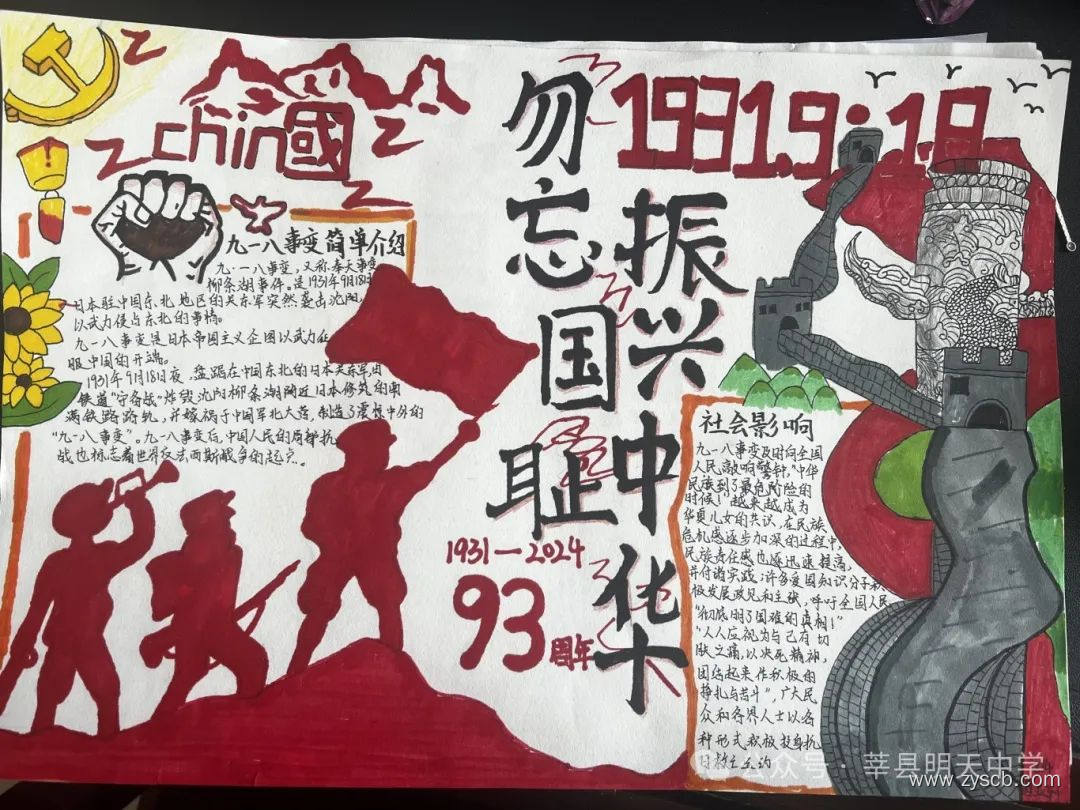 chin國
九一八事变简单介绍
九·一八事变，又称奉天事变
柳条湖事件。是1931年9月18日
日本驻中国东北地区的关东军突然袭击沈阳，
以武力侵占东北的事情。
九一八事变是日本帝国主义企图以武力征
服中国的开端。
1931年9月18日夜，盘踞在中国东北的日本关东军由
铁道"守备队"炸毁沈阳柳条湖附近日本修筑的南
满铁路路轨，并嫁祸于中国军北大营，制造了震惊中外的
"九一八事变"。九一八事变后，中国人民的局部抗
战也标志着世界反法西斯战争的起点。
勿忘国耻
振兴中华
1931.9·18
1931—2024
93周年
社会影响
九一八事变及时向全国
人民敲响警钟，"中华
民族到了最危险的
时候！"越来越成为
华夏儿女的共识，在民族
危机感逐步加深的过程中，
民族责任感也逐迅速提高，
并付诸实践；许多爱国知识分子积
极发展政见和主张，呼吁全国人民
"彻底明了国难的真相！"
"人人应视为与己有切
肤之痛，以决死精神，
团结起来作积极的
挣扎与苦斗"，广大民
众和各界人士以各
种形式积极投身抗
日救亡运动
公众号·莘县明天中学
www.zyscb.com